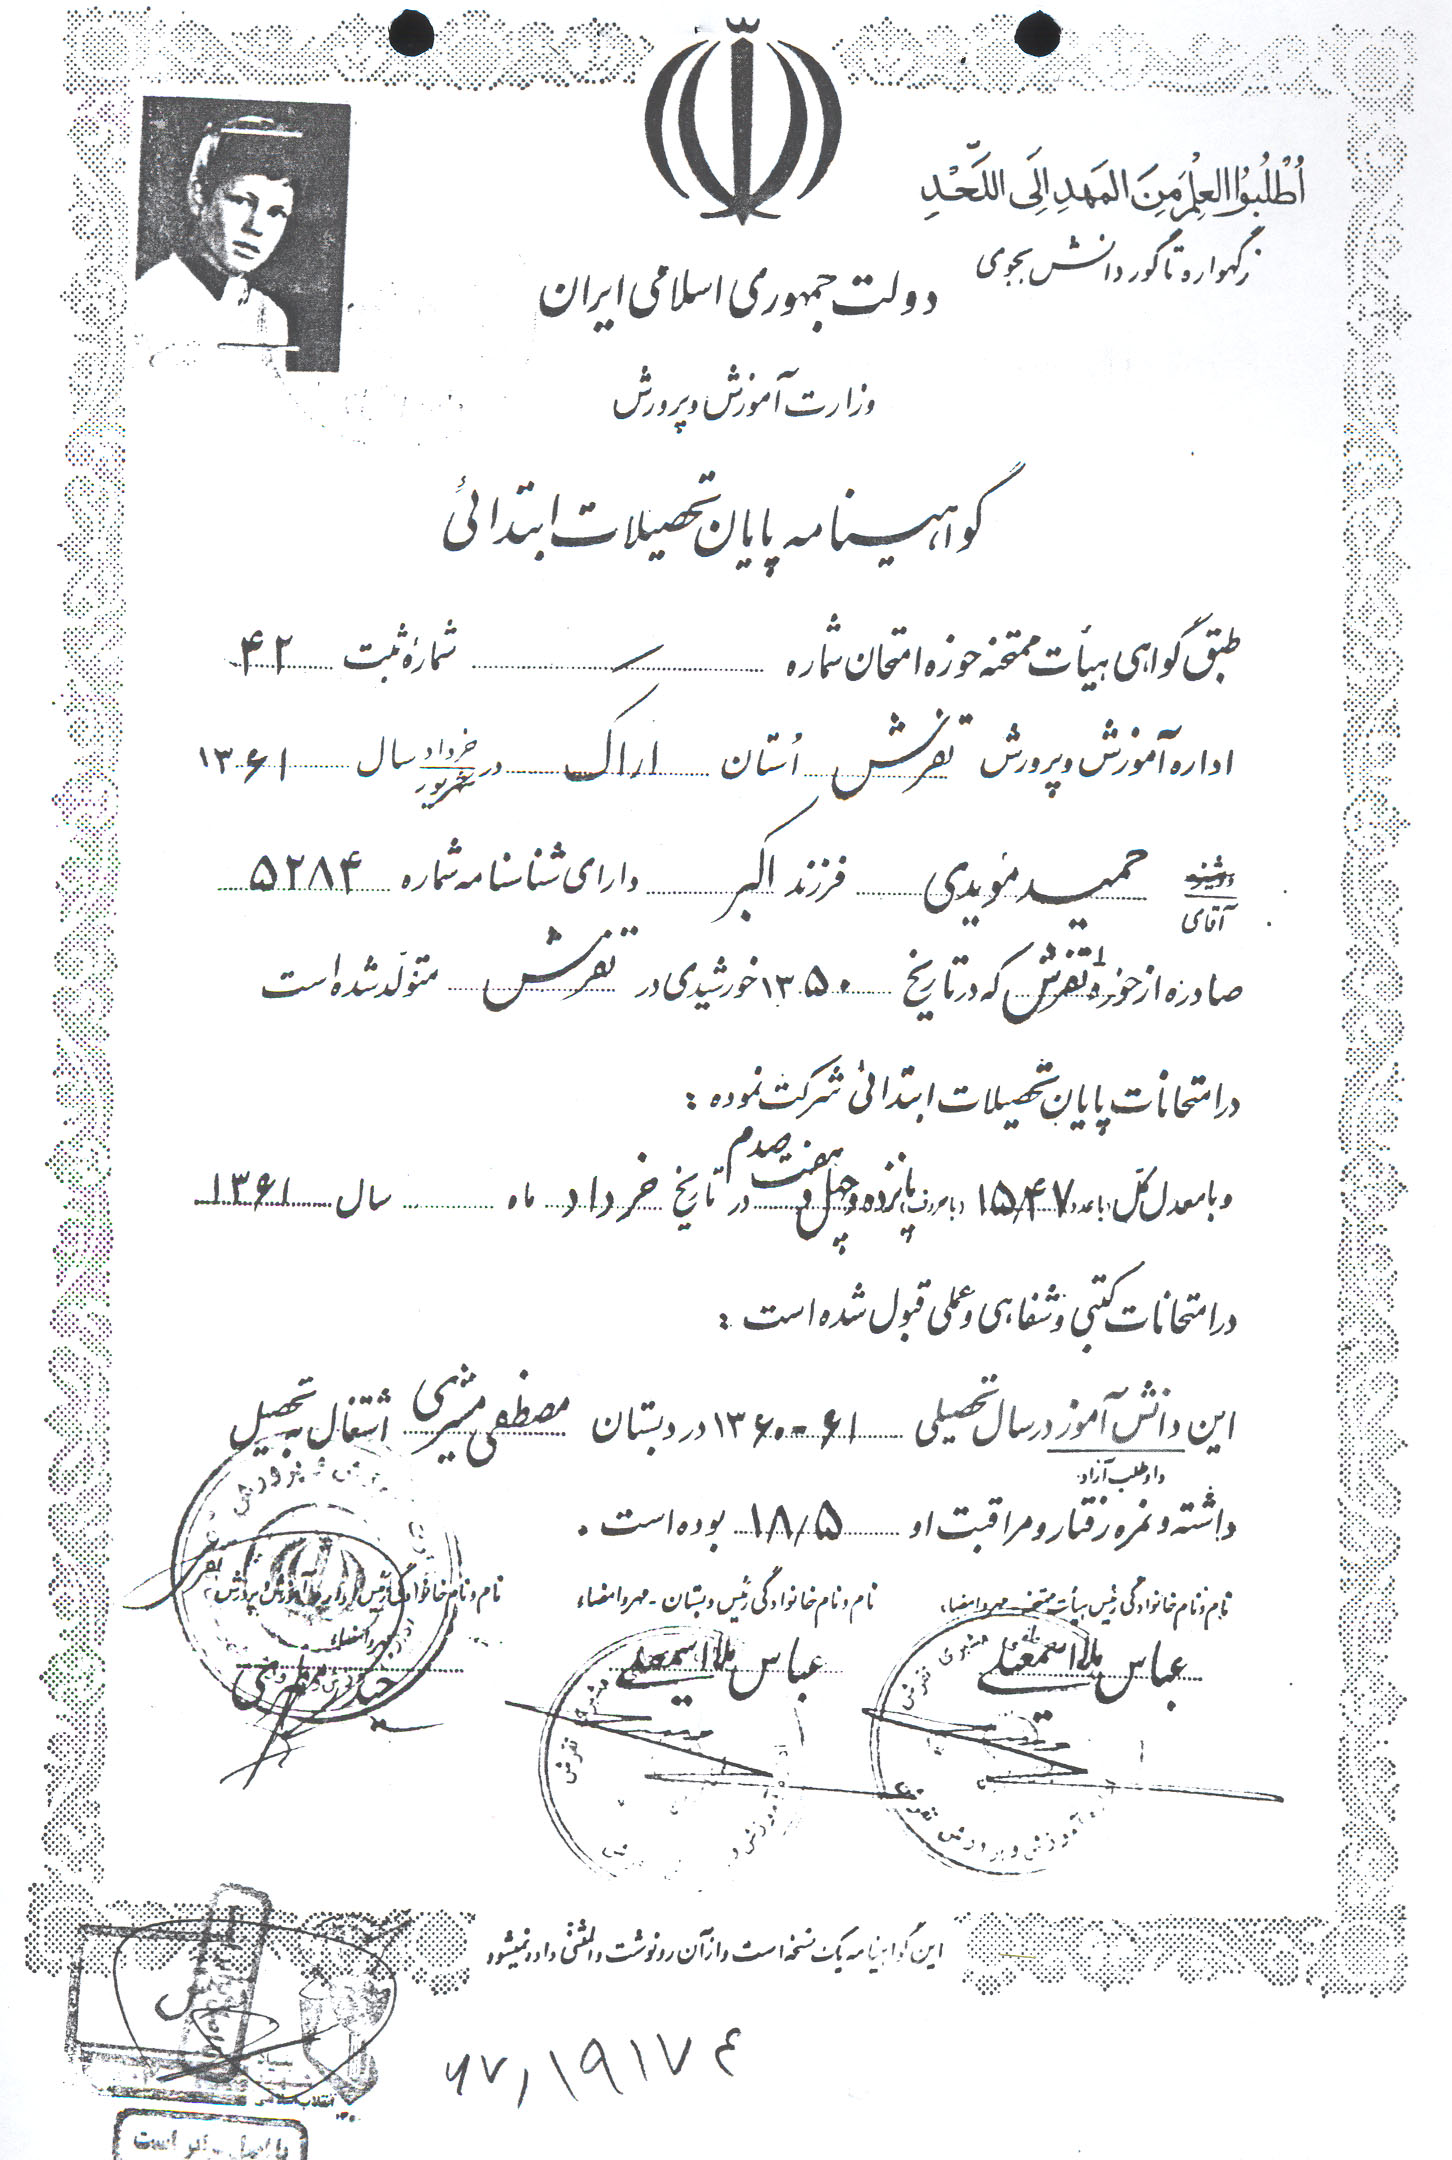 اُطْلُبُوا العِلْمَ مِنَ المَهدِ اِلَی اللَّحْدِ
ز گهواره تا گور دانش بجوی
دولت جمهوری اسلامی ایران
وزارت آموزش و پرورش
گواهینامه پایان تحصیلات ابتدائی
طبق گواهی هیأت ممتحنه حوزه امتحان شماره شمارهٔ ثبت ۴۲
اداره آموزش و پرورش تفرش اُستان اراک در خرداد شهریور سال ۱۳۶۱
دوشیزه آقای حمید مؤیدی فرزند اکبر دارای شناسنامه شماره ۵۲۸۴
صادره از حوزه ۱ تفرش که در تاریخ ۱۳۵۰ خورشیدی در تفرش متولّد شده است
در امتحانات پایان تحصیلات ابتدائی شرکت نموده :
و با معدل کلّ با عدد ۱۵/۴۷ و با حروف پانزده و چهل و هفت صدم در تاریخ خرداد ماه سال ۱۳۶۱
در امتحانات کتبی و شفاهی و عملی قبول شده است :
این دانش آموز در سال تحصیلی ۶۱-۱۳۶۰ در دبستان مصطفی اشتغال به تحصیل
داوطلب آزاد
داشته و نمره رفتار و مراقبت او ۱۸/۵ بوده است .
نام و نام خانوادگی رئیس هیأت ممتحنه - مهر و امضاء نام و نام خانوادگی رئیس دبستان - مهر و امضاء نام و نام خانوادگی رئیس اداره آموزش و پرورش
مهر و امضاء
عباس ملااسمعیلی عباس ملااسمعیلی
این گواهینامه یک نسخه است و از آن رونوشت و المثنی داده نمیشود
انقلاب اسلامی
با اصل برابر است